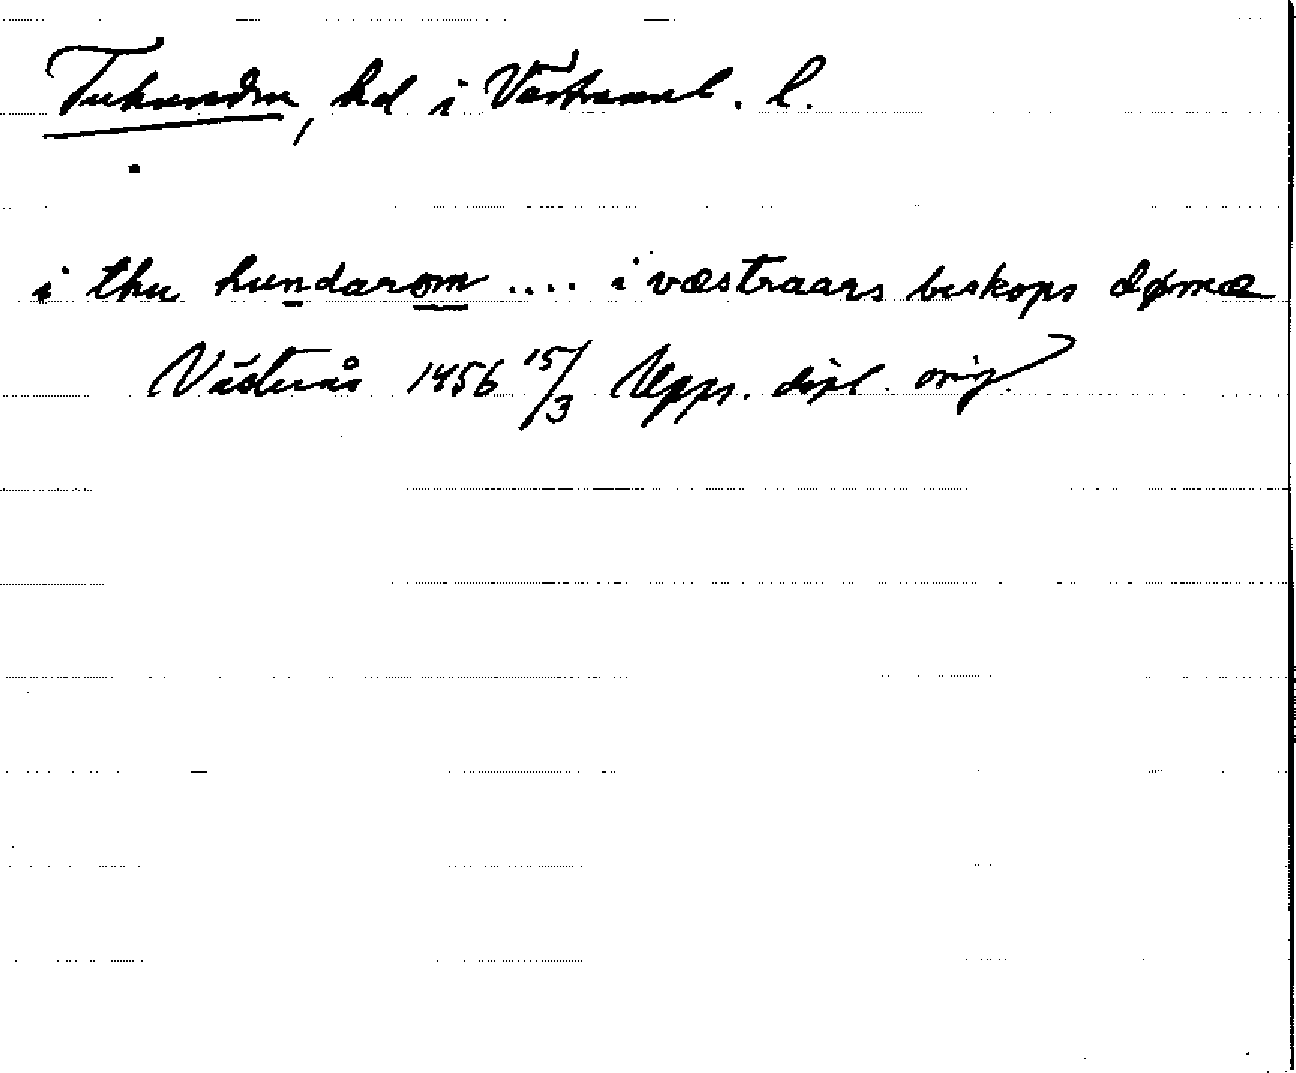 Tuhundra, hd i Västmanl. l.
i thu hundarom .... i væstraars biskops dømæ
Västerås 1456 15/3 Upps. dipl. orig.